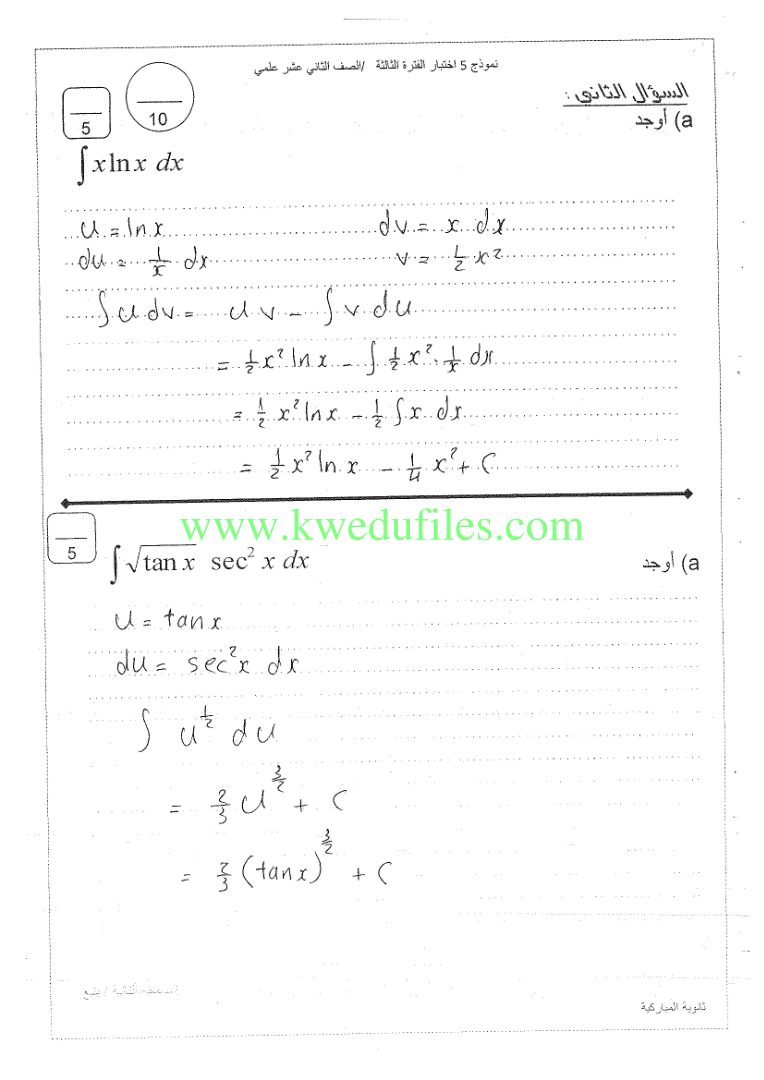 نموذج 5 اختبار الفترة الثالثة /الصف الثاني عشر علمي
السؤال الثاني :
a) أوجد
5
10
∫ x ln x dx
u = ln x dv = x dx
du = 1/x dx v = 1/2 x²
∫ u dv = u v - ∫ v du
= 1/2 x² ln x - ∫ 1/2 x² · 1/x dx
= 1/2 x² ln x - 1/2 ∫ x dx
= 1/2 x² ln x - 1/4 x² + C
www.kwedufiles.com
5
a) أوجد
∫ √(tan x) sec² x dx
u = tan x
du = sec² x dx
∫ u^(1/2) du
= 2/3 u^(3/2) + C
= 2/3 (tan x)^(3/2) + C
ثانوية المباركية